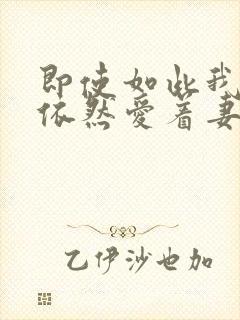 即使如此我
依然爱着妻
乙伊沙也加